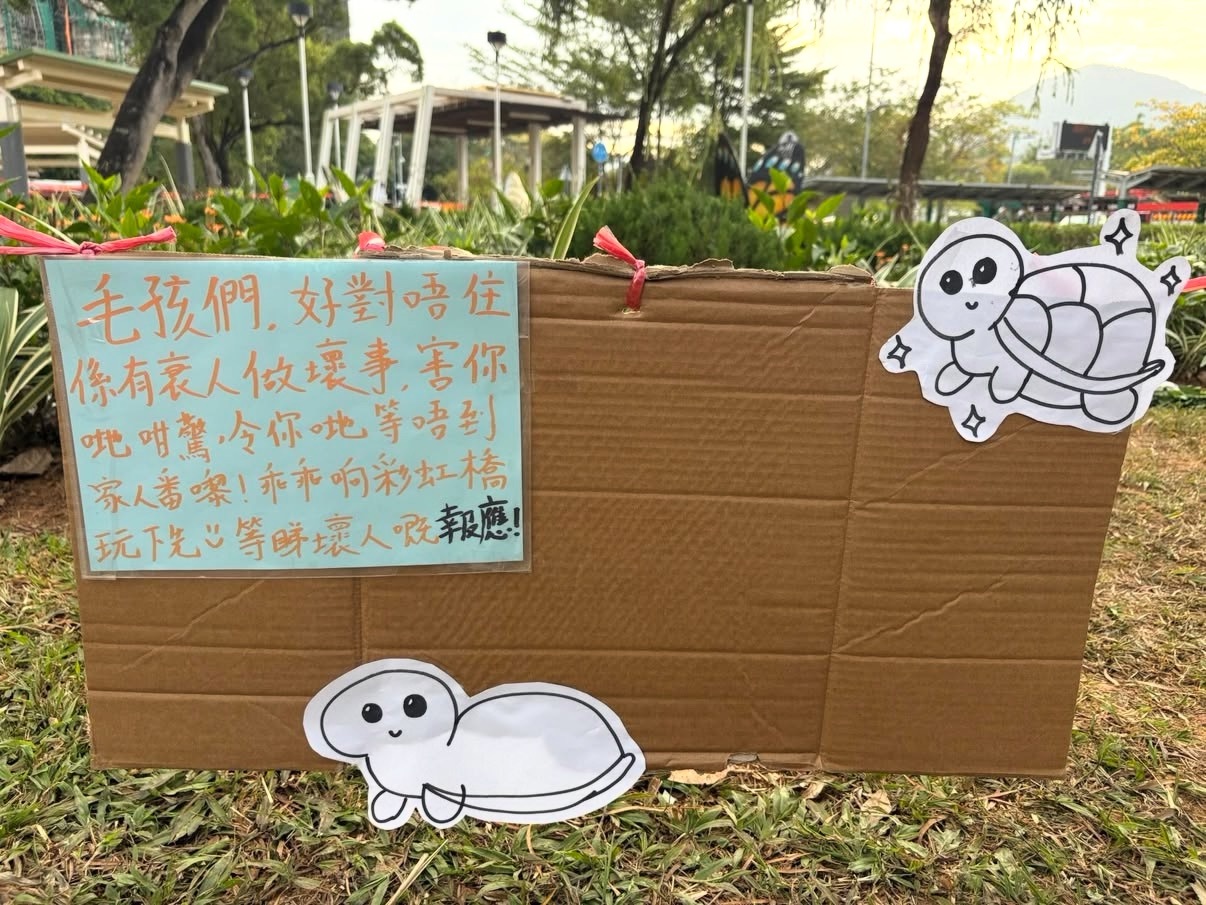 毛孩們,好對唔住
係有衰人做壞事,害你
哋咁驚,令你哋等唔到
家人番嚟!乖乖响彩虹橋
玩下先等睇壞人嘅報應!